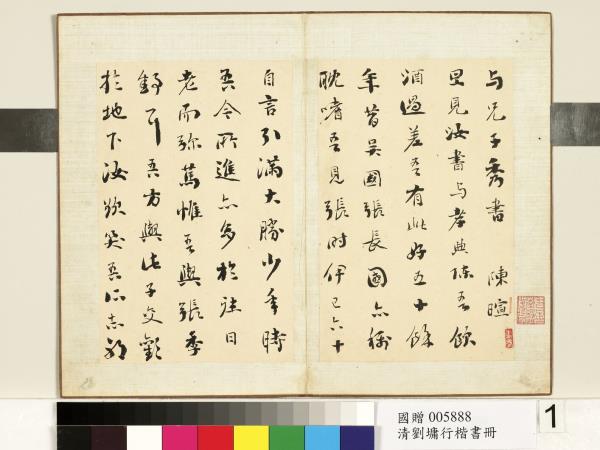 与兄子秀書 陳暄
旦見汝書与孝典陳吾飲
酒過差吾有此好五十餘
年昔吳國張長國亦稱
耽嗜吾見張時伊已六十
自言引滿大勝少年時
吾今所進亦多於往日
老而弥篤惟吾與張季
舒耳吾方與此子交歡
於地下汝欲笑吾所志邪
國贈 005888
清劉墉行楷書冊
1